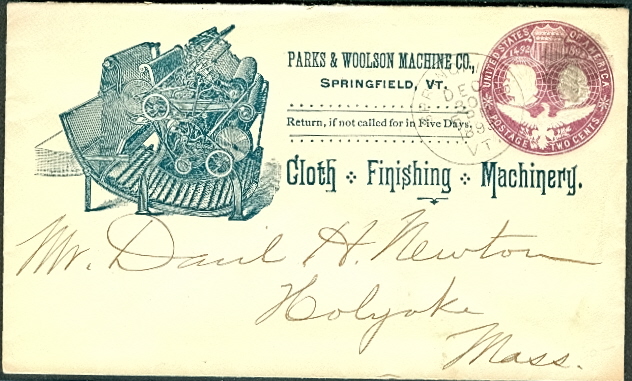 PARKS & WOOLSON MACHINE CO.,
SPRINGFIELD, VT.
Return, if not called for in Five Days.
Cloth Finishing Machinery.
UNITED STATES OF AMERICA
1492 1892
POSTAGE TWO CENTS
DEC
VT.
Mr. H. Newton
Holyoke
Mass.